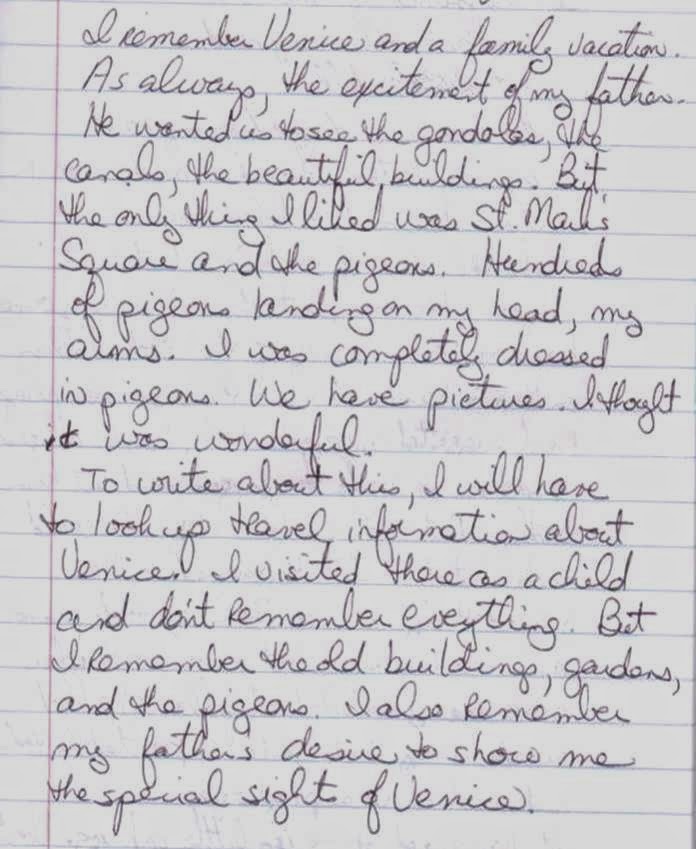 I remember Venice and a family vacation.
As always, the excitement of my father.
He wanted us to see the gondolas, the
canals, the beautiful buildings. But
the only thing I liked was St. Mark's
Square and the pigeons. Hundreds
of pigeons landing on my head, my
arms. I was completely dressed
in pigeons. We have pictures. I thought
it was wonderful.
To write about this, I will have
to look up travel information about
Venice. I visited there as a child
and don't remember everything. But
I remember the old buildings, gardens,
and the pigeons. I also remember
my father's desire to show me
the special sight of Venice.